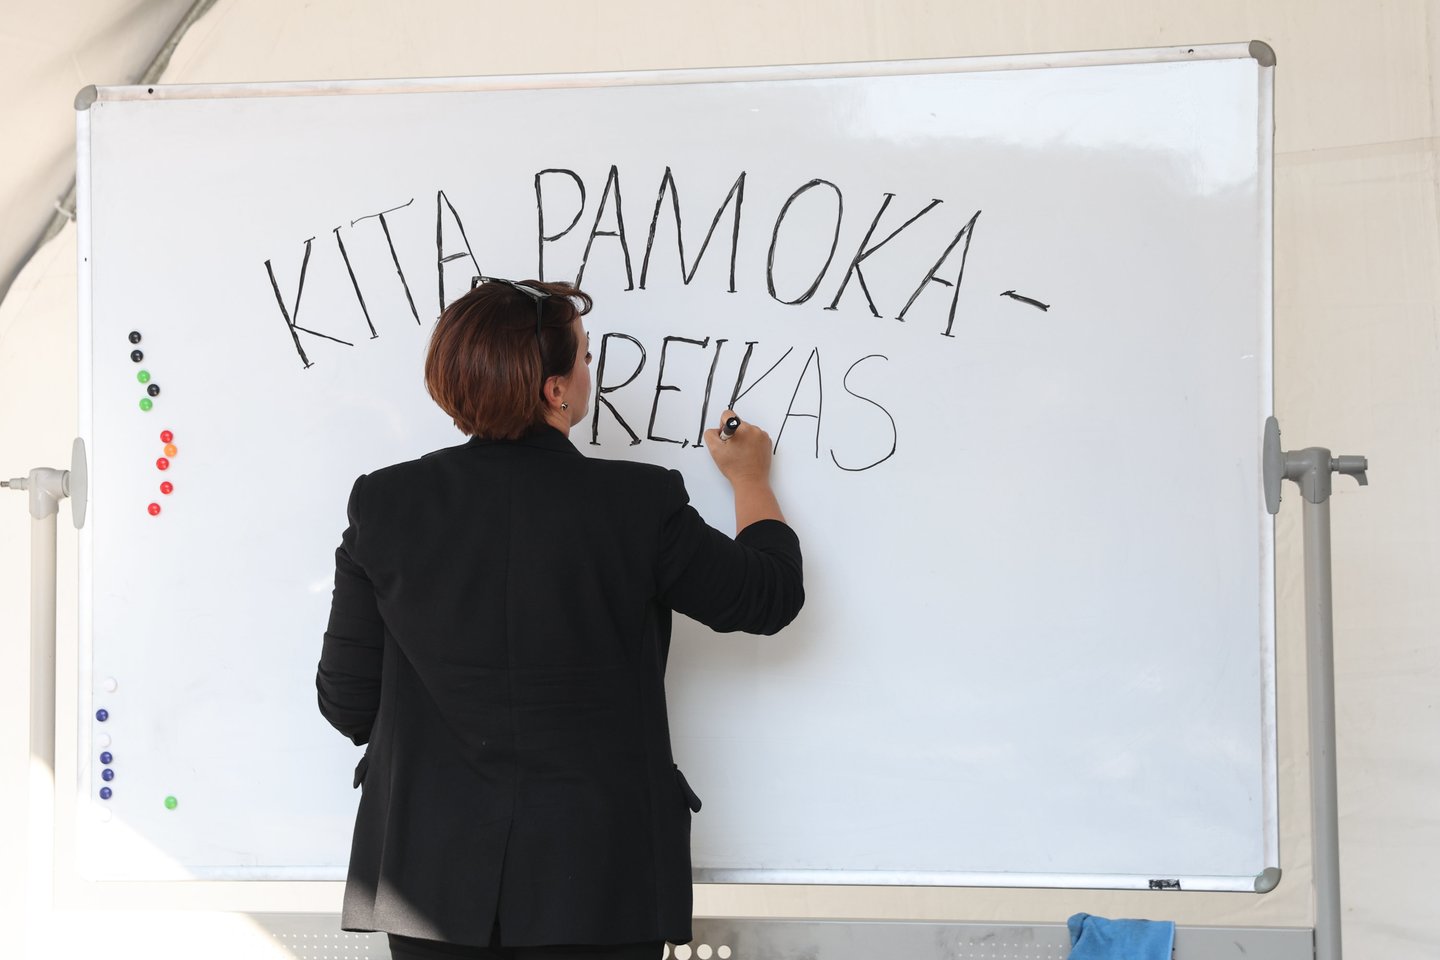 KITA PAMOKA -
REIKAS